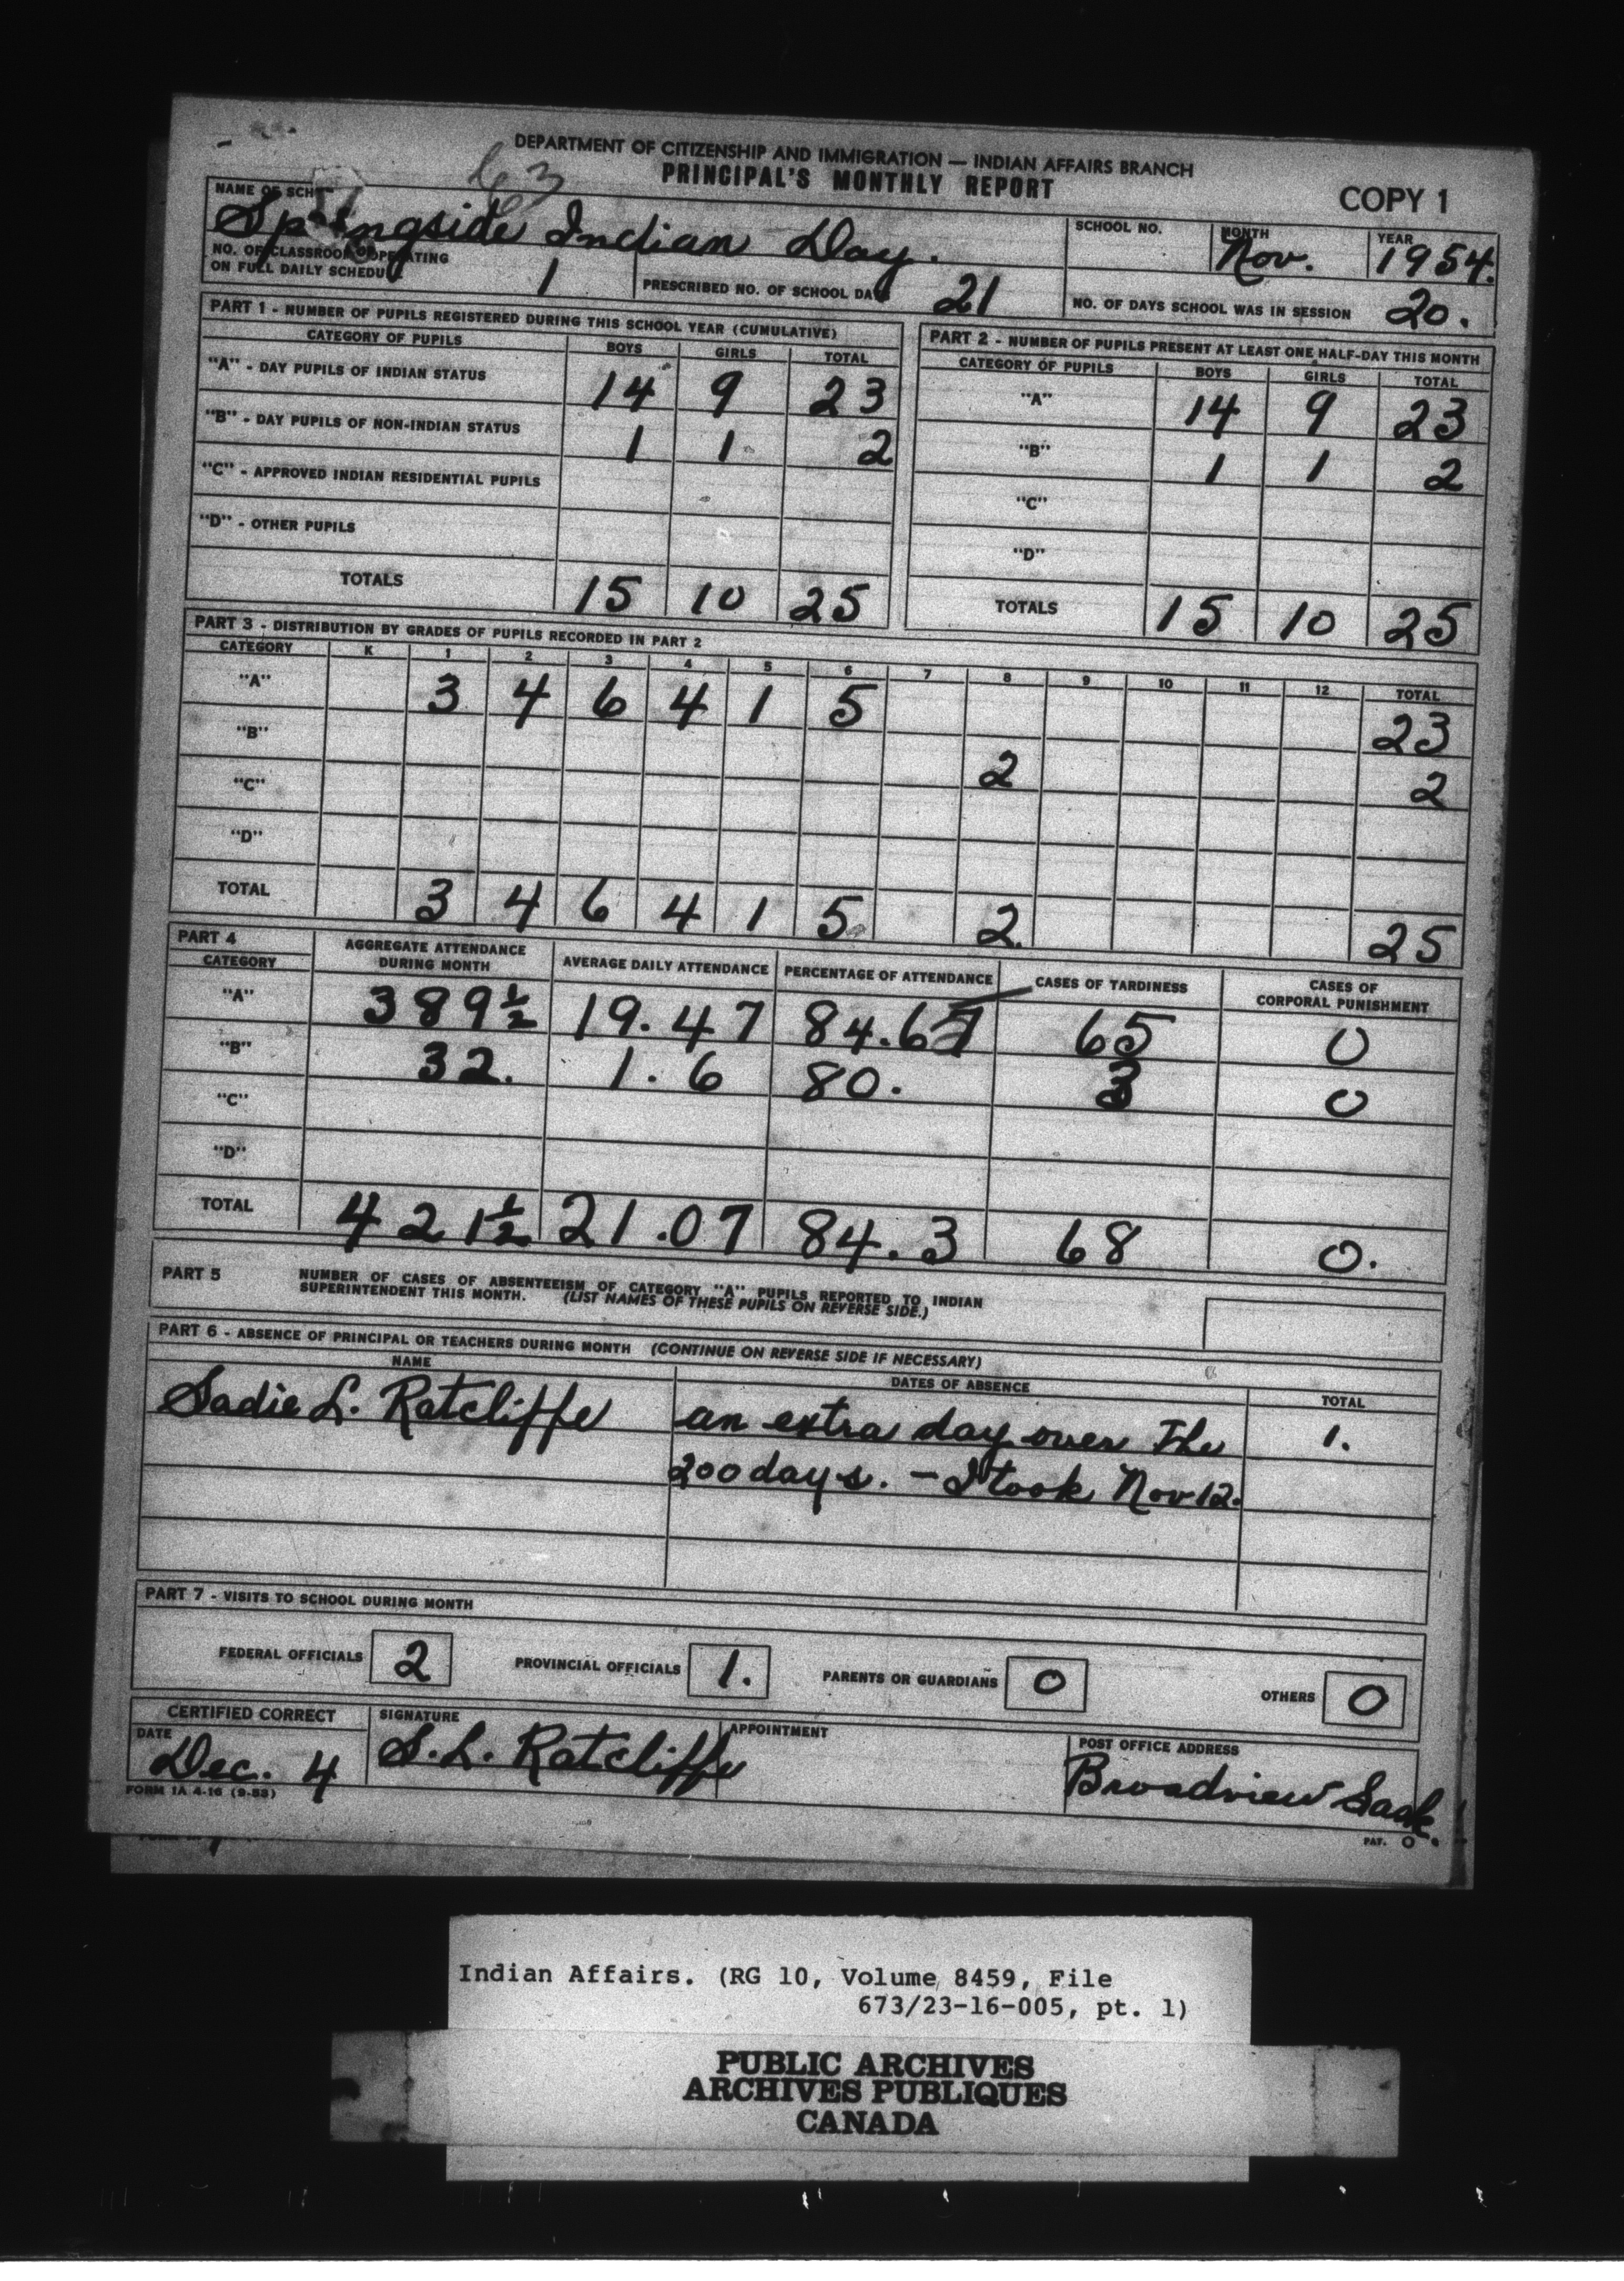 DEPARTMENT OF CITIZENSHIP AND IMMIGRATION — INDIAN AFFAIRS BRANCH
63
PRINCIPAL'S MONTHLY REPORT
COPY 1
NAME OF SCH
Springside Indian Day.
SCHOOL NO.
MONTH
Nov.
YEAR
1954.
NO. OF CLASSROOMS OPERATING
ON FULL DAILY SCHEDULE
1
PRESCRIBED NO. OF SCHOOL DAYS
21
NO. OF DAYS SCHOOL WAS IN SESSION
20.
PART 1 - NUMBER OF PUPILS REGISTERED DURING THIS SCHOOL YEAR (CUMULATIVE)
CATEGORY OF PUPILS BOYS GIRLS TOTAL
"A" - DAY PUPILS OF INDIAN STATUS 14 9 23
"B" - DAY PUPILS OF NON-INDIAN STATUS 1 1 2
"C" - APPROVED INDIAN RESIDENTIAL PUPILS
"D" - OTHER PUPILS
TOTALS 15 10 25
PART 2 - NUMBER OF PUPILS PRESENT AT LEAST ONE HALF-DAY THIS MONTH
CATEGORY OF PUPILS BOYS GIRLS TOTAL
"A" 14 9 23
"B" 1 1 2
"C"
"D"
TOTALS 15 10 25
PART 3 - DISTRIBUTION BY GRADES OF PUPILS RECORDED IN PART 2
CATEGORY K 1 2 3 4 5 6 7 8 9 10 11 12 TOTAL
"A" 3 4 6 4 1 5 23
"B" 2 2
"C"
"D"
TOTAL 3 4 6 4 1 5 2. 25
PART 4
CATEGORY
AGGREGATE ATTENDANCE
DURING MONTH
AVERAGE DAILY ATTENDANCE
PERCENTAGE OF ATTENDANCE
CASES OF TARDINESS
CASES OF
CORPORAL PUNISHMENT
"A" 389½ 19.47 84.67 65 0
"B" 32. 1.6 80. 3 0
"C"
"D"
TOTAL 421½ 21.07 84.3 68 0.
PART 5
NUMBER OF CASES OF ABSENTEEISM OF CATEGORY "A" PUPILS REPORTED TO INDIAN
SUPERINTENDENT THIS MONTH. (LIST NAMES OF THESE PUPILS ON REVERSE SIDE.)
PART 6 - ABSENCE OF PRINCIPAL OR TEACHERS DURING MONTH (CONTINUE ON REVERSE SIDE IF NECESSARY)
NAME DATES OF ABSENCE TOTAL
Sadie L. Ratcliffe an extra day over the 1.
200 days. - I took Nov 12.
PART 7 - VISITS TO SCHOOL DURING MONTH
FEDERAL OFFICIALS 2 PROVINCIAL OFFICIALS 1. PARENTS OR GUARDIANS 0 OTHERS 0
CERTIFIED CORRECT
DATE
Dec. 4
SIGNATURE
S.L. Ratcliffe
APPOINTMENT
POST OFFICE ADDRESS
Broadview Sask.
FORM 1A 4-16 (9-53)
PAT. O
Indian Affairs. (RG 10, Volume 8459, File
673/23-16-005, pt. 1)
PUBLIC ARCHIVES
ARCHIVES PUBLIQUES
CANADA